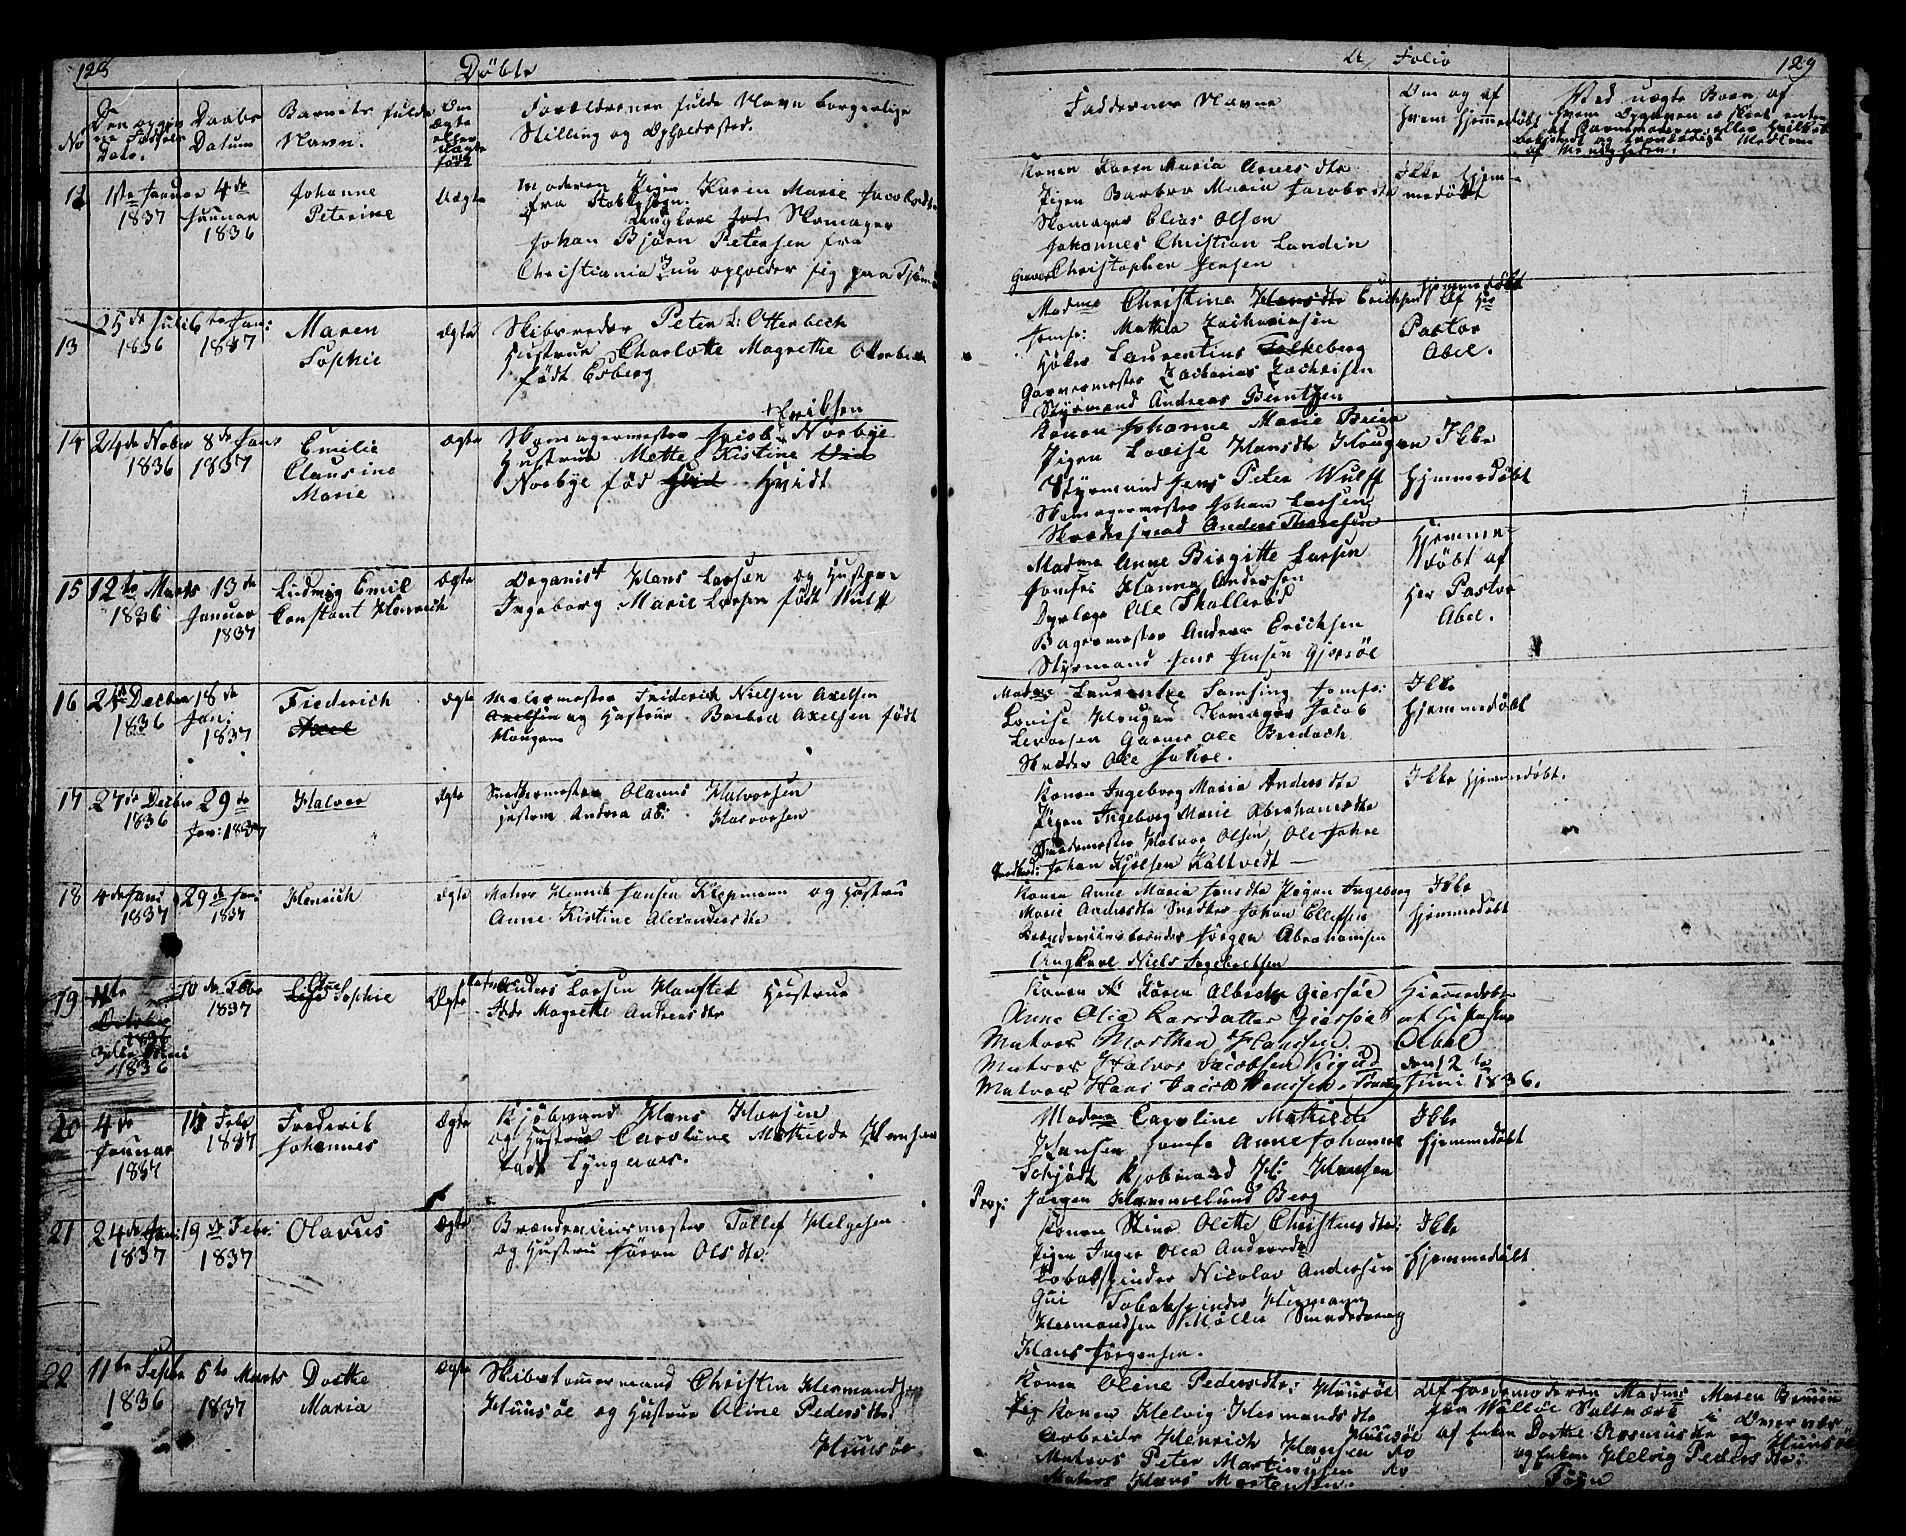 128 Döbte
No
Den opgivne Födsels Dato.
Daabs Datum
Barnets fulde Navn.
Om Ægte eller Uægte födt
Forældrenes fulde Navn borgerlige
Stilling og Opholdssted.
12 1ste Januar 1837 4de Januar 1836 Johanne Peterine Uægte
Moderen Pigen Karen Marie Jacobsdtr
fra
Skomager
Johan Björn Petersen fra
Christiania nu opholder sig paa Tjömö
13 25de Juli 1836 1837 Maren Sophie ægte
Skibsreder Peter L: Otterbech
Hustrue Charlotte Magrethe Otterbech
født Esberg
14 24de Novbr 1836 8de Janr 1837 Emilie Clausine Marie ægte
+ Eriksen
Skomagermester Jacob + Norbye
Hustrue Mette Kistine
Norbye föd Hvidt
15 12te Marts 1836 13de Januar 1837 Ludvig Emil Constant Henrich ægte
Organist Hans Larsen og Hustrue
Ingeborg Marie Larsen födt Wulff
16 24de Decbr 1836 18de Jan: 1837 Friederich Axel ægte
Malermester Friderich Nielsen Axelsen
Axelsen og Hustrue Barbra Axelsen födt
Haugen
17 27de Decbr 1836 29de Jan: 1837 Halvor ægte
Snedkermester Olaves Halvorsen
Hustrue Andrea Ab: Halvorsen
18 4de Jani 1837 29de Jani 1837 Henrich ægte
Matros Henrik Jansen Klepmann og Hustru
Anne Kistine Alexandersdtr
19 11te October 1836 1836 10de Febr 1837 Sophie Ægte
Anders Larsen Hansted Hustrue
Magrette Andreasdtr
20 4de Januar 1837 Febr 1837 Frederik Johannes Ægte
Kjöbmand Hans Hansen
og Hustrue Caroline Mathilde Hansen
födt Lyngaaes.
21 24de Jan: 1837 19de Febr: 1837 Olavus ægte
Brændeviinsmester Tollef Helgesen
og Hustru Sören Olsdtr.
22 11te Septbr 1836 5te Marts 1837 Dorthe Maria ægte
Skibstömmermand Christen Hermandsen
Huusöe og Hustrue Oline Pedersdtr:
Huusöe
Folio 129
Faddernes Navne
Om og af
hvem hjemmedöbt
Ved uægte Boern af
hvem Opgaven er skeet, enten
af Barnemoderen, eller hvilket
bekjendt og troværdigt Medlem
af Menigheden.
Konen Karen Maria Arnesdtr
Pigen Barbra Maria Jacobsdtr
Skomager Elias Olsen
Johannes Christian Lundin
Graver Christopher Jensen
Ikke hjem-
medöbt
Madme Christine Hansdtr Ericksen
Jomfr: Mathea Zachariasen
Höker Laurentius Falkeberg
Garvermester Zacharias Zachrisen
Styrmand Andreas Berntzen
Hjemmedöbt
af Hr
Pastor
Abel.
Konen Johanne Marie Beier
Pigen Lovise Hansdtr Haugen
Styrmand Jens Peter Wulff
Skomagermester Johan Larsen
Skrædersvend Anders Thoresen
Ikke
hjemmedöbt
Madme Anne Birgitte Larsen
Jomfr Hanna Andersen
Dyrlæge Ole Thalleröd
Bagermester Anders Ericksen
Styrmand Jens Jensen Gjersöe
Hjemme-
döbt af
Her Pastor
Abel.
Madme Laurentze Samsing Jomfr:
Lovise Haugan Skomager Jacob
Levorsen Garver Ole Bredoch
Skræder Ole Jahre.
Ikke
hjemmedöbt
Konen Ingeborg Maria Andersdtr
Pigen Ingeborg Marie Abrahamsdtr
Smedemester Halvor Olsen, Ole Jahre
Snedkerd: Johan Kjölsen Kaltvedt —
Ikke hjemmedöbt.
Konen Anne Maria Jensdtr Pigen Ingeborg
Marie Andersdtr Snedker Johan Ellefsen
Brændeviinsbrænder Jörgen Abrahamsen
Ungkarl Niels Ingebretsen
Ikke
hjemmedöbt
Konen Karen Albertz Giersöe
Anne Olea Larsdatter Giersöe
Matros Morthen Hanssen
Matros Halvor Jacobsen
Matros Hans Jacob Henrichs:
Hiemmedöbt
af Hr Pastor
Abel
den 12te
Juni 1836.
Madme Caroline Mathilde
Hansen Jomfr Anne Johanne
Schjödt Kjöbmand H: Hansen
Prop: Jörgen Hammelund Berg
Ikke
hjemmedöbt
Konen Stine Olette Christensdtr:
Pigen Inger Olea Andersdtr
Tobakspinder Nicolai Andersen
Gui Tobakspinder Hermann
Hermandsen Möller Smededreng
Hans Jörgensen.
Ikke
hjemmedöbt.
Konen Oline Pedersdtr: Huusöe
Pig Konen Helvig Hermandsdtr
Arbeider Henrich Hansen Huusöe do
Matros Peter Martinussen do
Matros Hans Mortensen.
Af Jordemoderen Madme Maren Bruun
fra Wallöe Saltværk i Overvær
af Enken Dorthe Rasmusdtr og Huusöe
og Enken Helvig Pedersdtr: